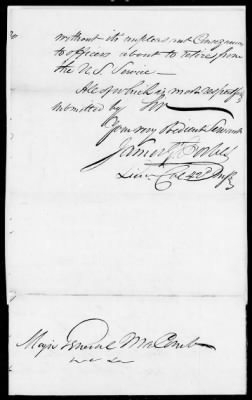 without its unpleasant Consequences
to officers about to retire from
the U.S. Service—
All of which is most respectfully
submitted by Sir
Your very Obedient Servant
Lieu. Col 42d Infy
Major General Macomb